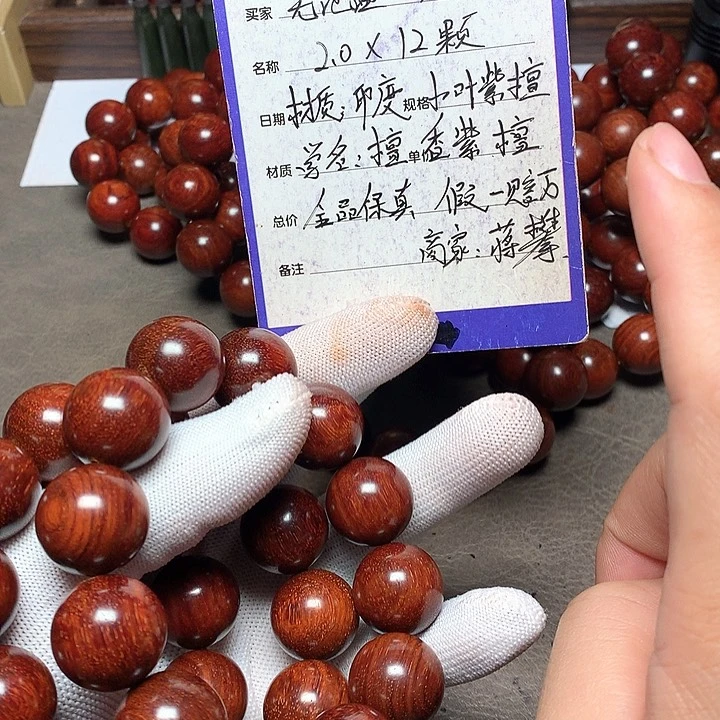 买家
名称 2.0 X 12颗
日期 材质：印度 规格 小叶紫檀
材质 学名：檀 单价 香紫檀
总价 全品保真 假一赔万
备注 商家：蒋攀